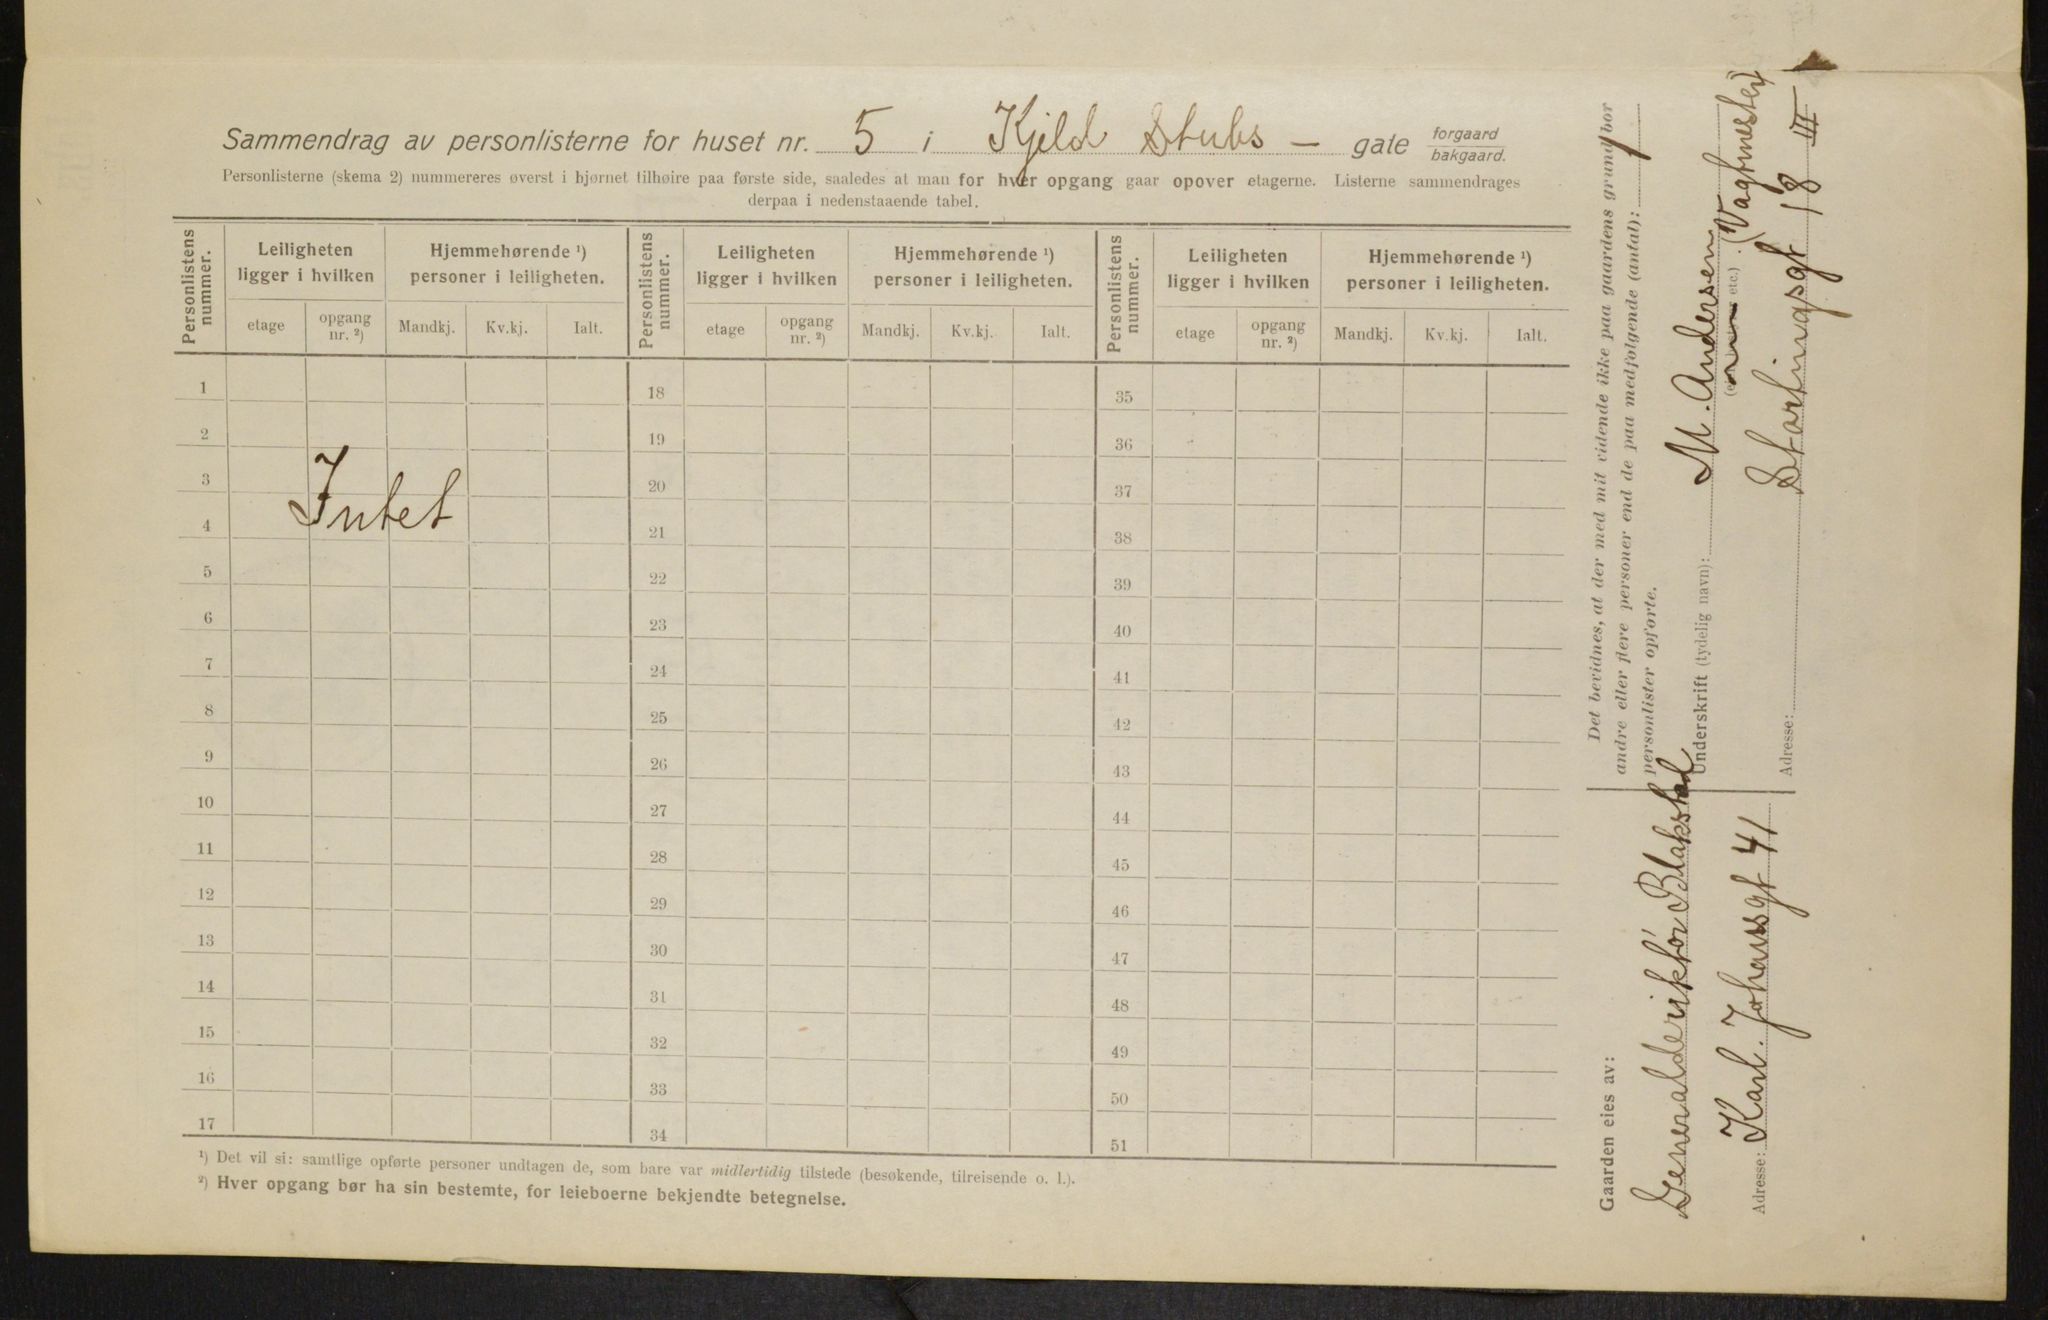 Sammendrag av personlisterne for huset nr. 5 i Kjeld Stubs – gate forgaard bakgaard.
Personlisterne (skema 2) nummereres øverst i hjørnet tilhøire paa første side, saaledes at man for hver opgang gaar opover etagerne. Listerne sammendrages
derpaa i nedenstaaende tabel.
Personlistens nummer. Leiligheten ligger i hvilken Hjemmehørende ¹) personer i leiligheten. Personlistens nummer. Leiligheten ligger i hvilken Hjemmehørende ¹) personer i leiligheten. Personlistens nummer. Leiligheten ligger i hvilken Hjemmehørende ¹) personer i leiligheten.
etage opgang nr. ²) Mandkj. Kv.kj. Ialt. etage opgang nr. ²) Mandkj. Kv.kj. Ialt. etage opgang nr. ²) Mandkj. Kv.kj. Ialt.
1 18 35
2 19 36
3 20 37
Intet
4 21 38
5 22 39
6 23 40
7 24 41
8 25 42
9 26 43
10 27 44
11 28 45
12 29 46
13 30 47
14 31 48
15 32 49
16 33 50
17 34 51
¹) Det vil si: samtlige opførte personer undtagen de, som bare var midlertidig tilstede (besøkende, tilreisende o. l.).
²) Hver opgang bør ha sin bestemte, for leieboerne bekjendte betegnelse.
Det bevidnes, at der med mit vidende ikke paa gaardens grund bor
andre eller flere personer end de paa medfølgende (antal): 1
personlister opførte.
Underskrift (tydelig navn): M. Andersen
etc.) (Vagtmester)
Adresse: Stortingsgt 18 III
Gaarden eies av:
Generaldirektør Blakstad
Adresse: Karl. Johansgt 41